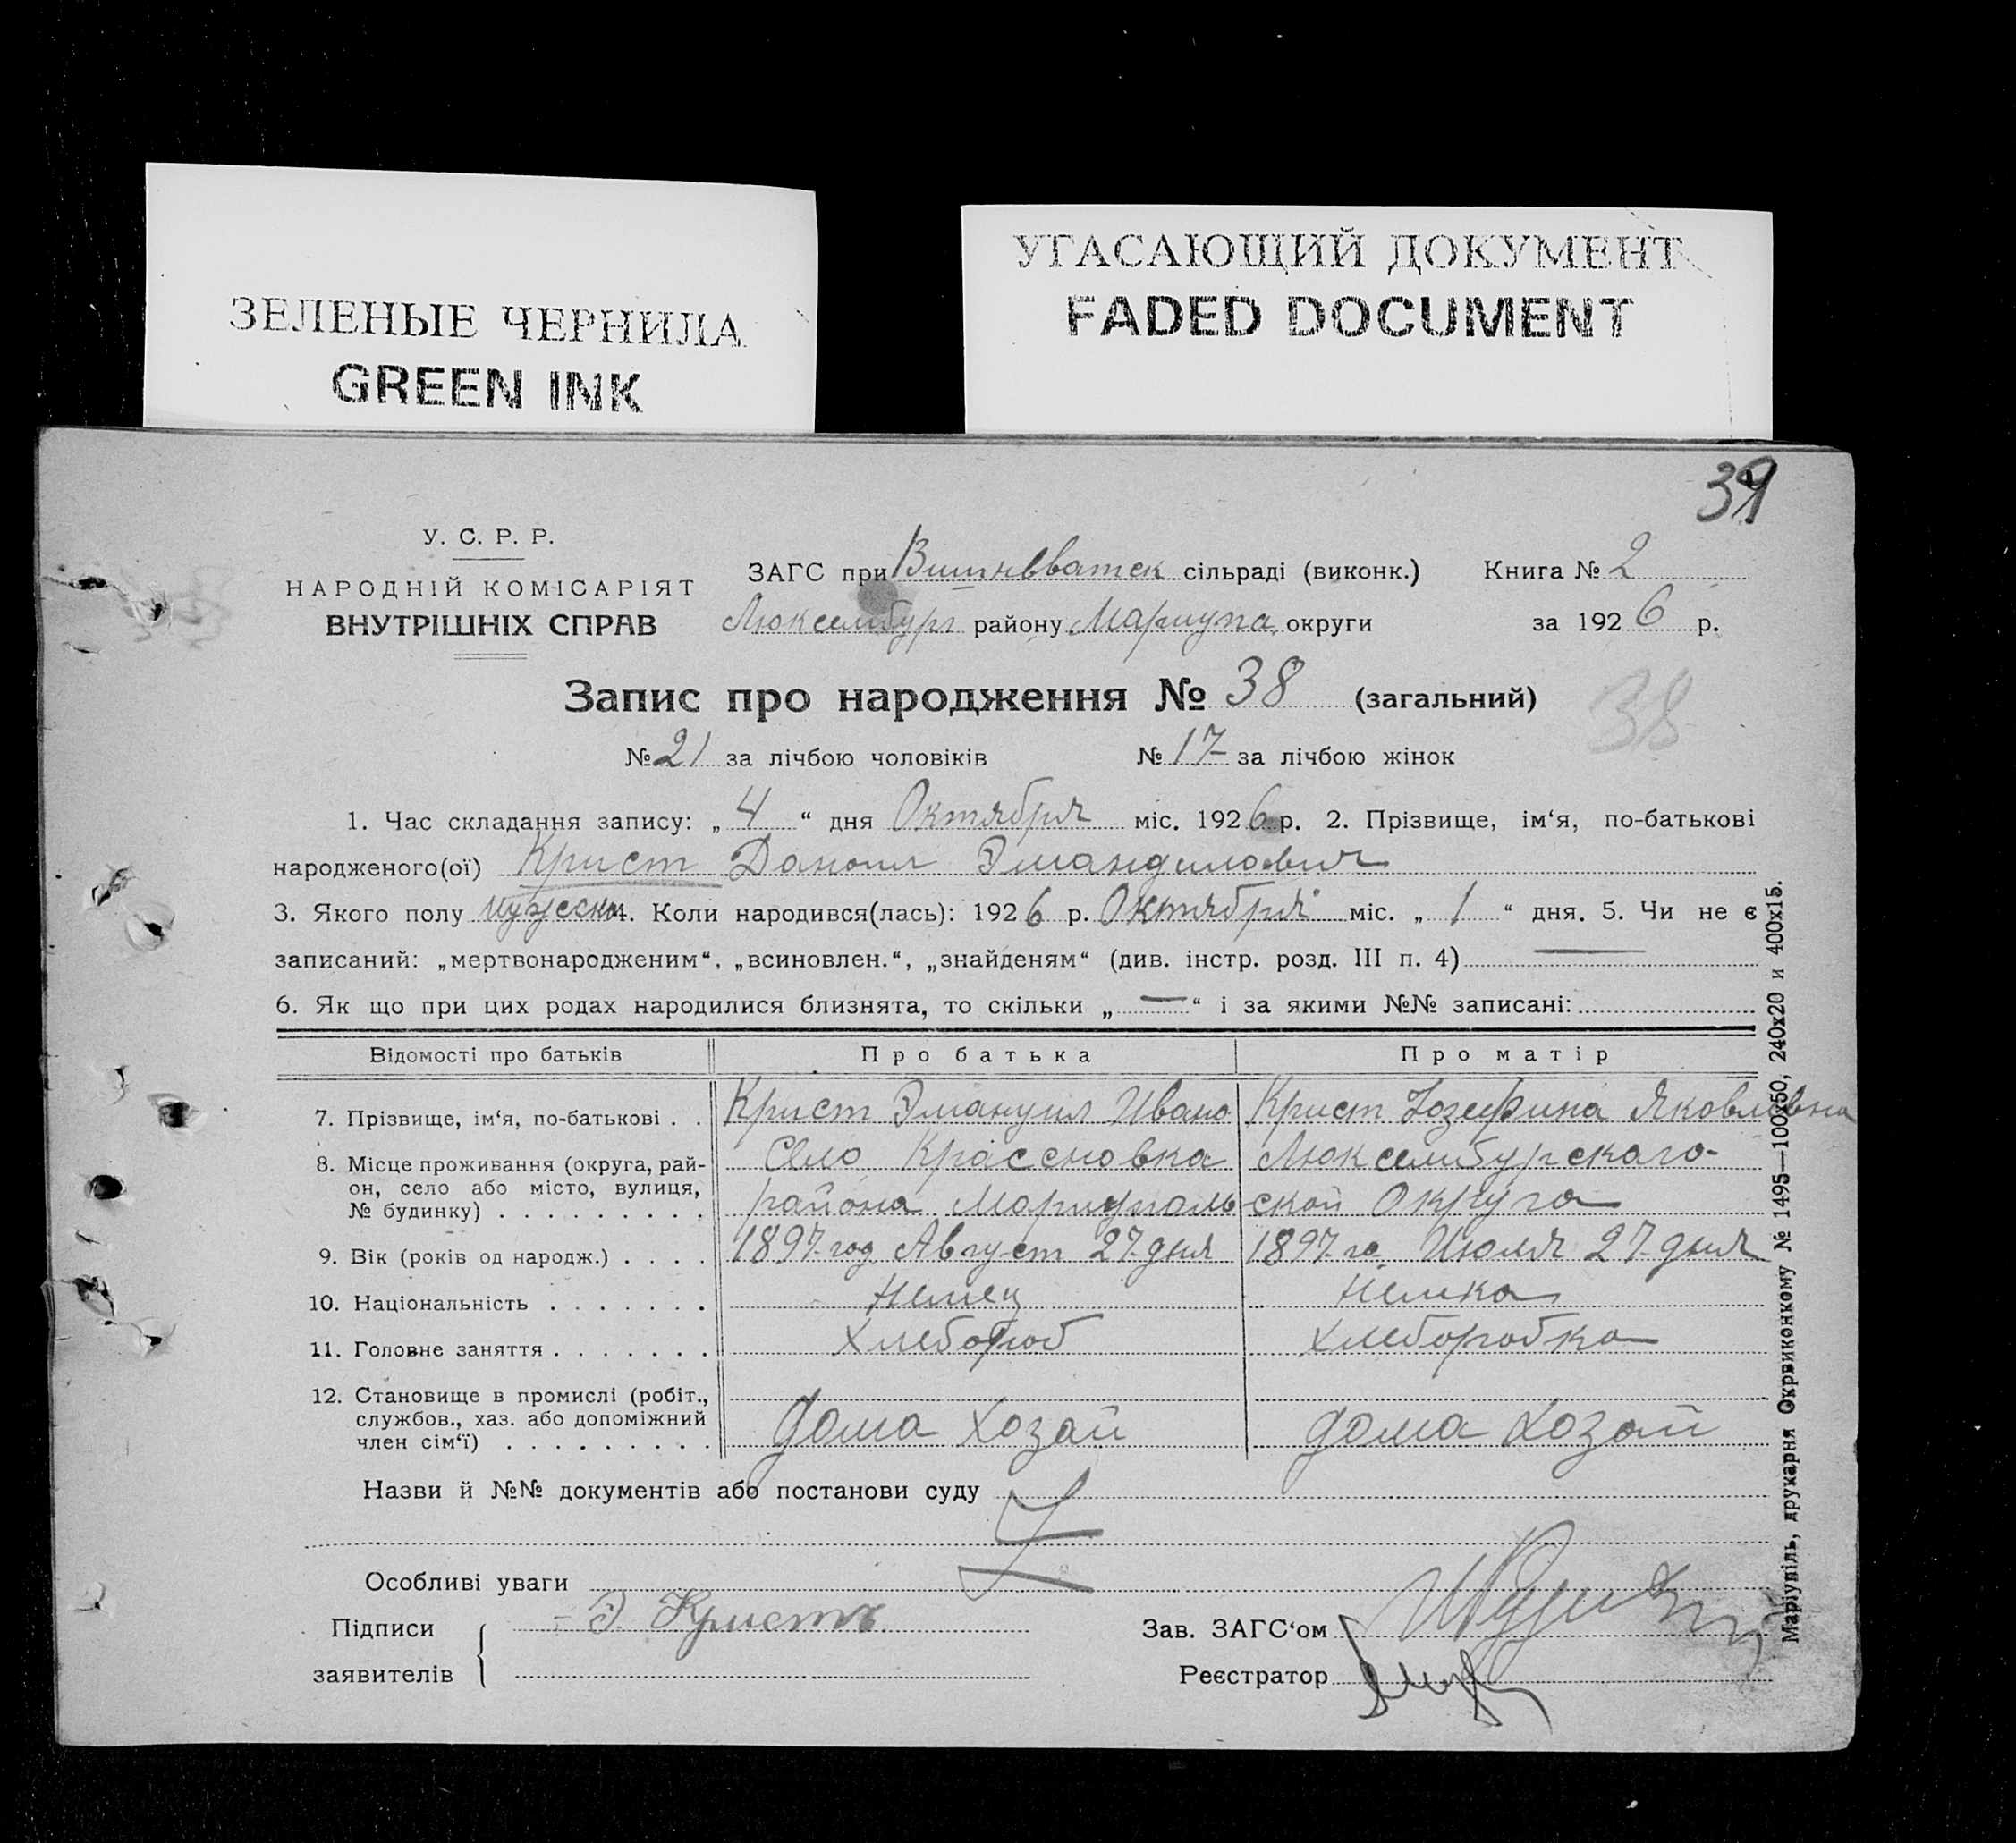 ЗЕЛЕНЫЕ ЧЕРНИЛА
GREEN INK
УГАСАЮЩИЙ ДОКУМЕНТ
FADED DOCUMENT
39
У. С. Р. Р.
НАРОДНІЙ КОМІСАРІЯТ
ВНУТРІШНІХ СПРАВ
ЗАГС при Вишневватск сільраді (виконк.) Книга № 2
Люксембург району Мариупа округи за 1926 р.
Запис про народження № 38 (загальний)
38
№ 21 за лічбою чоловіків № 17 за лічбою жінок
1. Час складання запису: „ 4 “ дня Октября міс. 1926 р. 2. Прізвище, ім‘я, по-батькові
народженого(ої) Крист Даноил Эмандилович
3. Якого полу мужеска 4. Коли народився(лась): 1926 р. Октября міс. „ 1 “ дня. 5. Чи не є
записаний: „мертвонародженим“, „всиновлен.“, „знайденям“ (див. інстр. розд. III п. 4) —
6. Як що при цих родах народилися близнята, то скільки „ — “ і за якими №№ записані:
Відомості про батьків Про батька Про матір
7. Прізвище, ім‘я, по-батькові . . Крист Эмануил Ивано Крист Іозефина Яковлевна
8. Місце проживання (округа, рай- Село Красновка Люксембургскаго-
он, село або місто, вулиця,
№ будинку) . . . . . . . . . района Мариуполь ской Округа
9. Вік (років од народж.) . . . . 1897 год Август 27 дня 1897 го Июля 27 дня
10. Національність . . . . . . . Немец Немка
11. Головне заняття . . . . . . . Хлебороб Хлеборобка
12. Становище в промислі (робіт.,
службов., хаз. або допоміжний
член сім‘ї) . . . . . . . . . дома хозай дома хозай
Назви й №№ документів або постанови суду
Особливі уваги
Підписи Э. Кристъ Зав. ЗАГС‘ом
заявителів Реєстратор
Маріупіль, друкарня Окрвиконкому № 1495—100х50, 240х20 и 400х15.